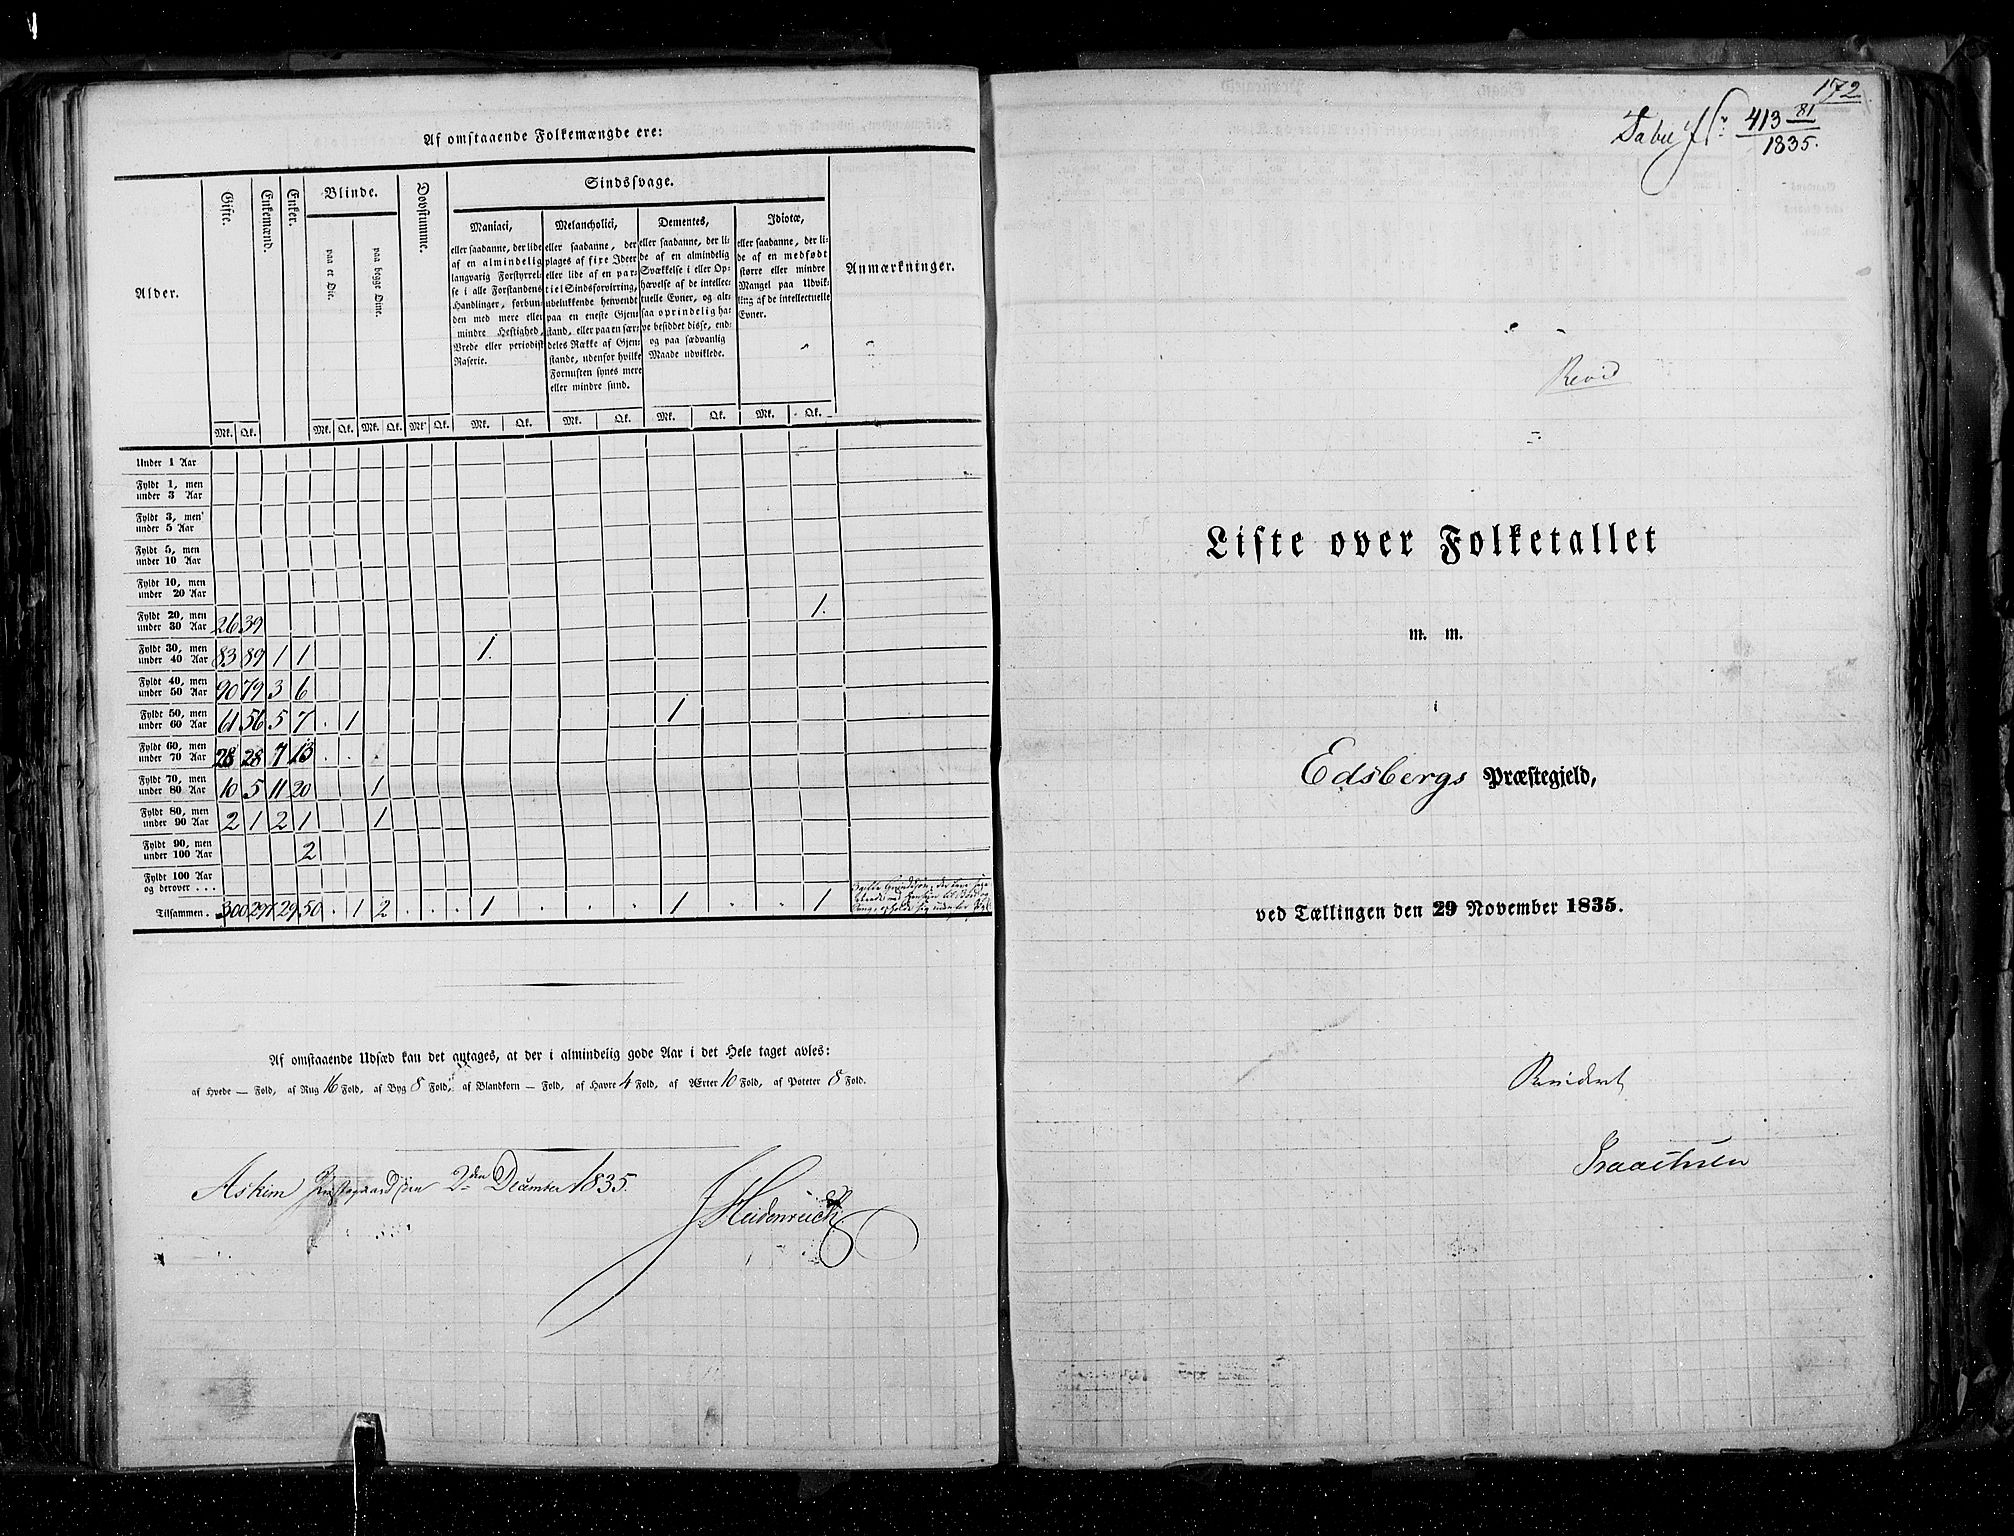 Af omstaaende Folkemængde ere:
Alder.
Gifte.
Enkemænd.
Enker.
Blinde.
paa et Øie.
paa begge Øine.
Døvstumme.
Sindssvage.
Maniaci,
eller saadanne, der lide
af en almindelig
langvarig Forstyrrel-
se i alle Forstandens
Handlinger, forbun-
den med mere eller
mindre Heftighed,
Vrede eller periodisk
Raserie.
Melancholici,
eller saadanne, der
plages af fixe Ideer
eller lide af en par-
tiel Sindsforvirring,
udelukkende henvendt
paa en eneste Gjen-
stand, eller paa en sær-
deles Række af Gjen-
stande, udenfor hvilke
Fornuften synes mere
eller mindre sund.
Dementes,
eller saadanne, der li-
de af en almindelig
Svækkelse i eller Op-
hævelse af de intellec-
tuelle Evner, og alt-
saa oprindelig ha-
ve besiddet disse, end-
og paa sædvanlig
Maade udviklede.
Idiotæ,
eller saadanne, der li-
de af en medfødt
større eller mindre
Mangel paa Udvik-
ling af de intellectuelle
Evner.
Anmærkninger.
Mk. Qk. Mk. Qk. Mk. Qk. Mk. Qk. Mk. Qk. Mk. Qk. Mk. Qk. Mk. Qk.
Under 1 Aar
Fyldt 1, men
under 3 Aar
Fyldt 3, men
under 5 Aar
Fyldt 5, men
under 10 Aar
Fyldt 10, men
under 20 Aar
Fyldt 20, men
under 30 Aar 26 39 1.
Fyldt 30, men
under 40 Aar 83 89 1 1 1.
Fyldt 40, men
under 50 Aar 90 79 3 6
Fyldt 50, men
under 60 Aar 61 56 5 7 . 1 1
Fyldt 60, men
under 70 Aar 28 28 7 13 . . .
Fyldt 70, men
under 80 Aar 10 5 11 20 1
Fyldt 80, men
under 90 Aar 2 1 2 1 1
Fyldt 90, men
under 100 Aar 2
Fyldt 100 Aar
og derover . . .
Tilsammen . 300 297 29 50 . 1 2 . . . 1 . . . 1 . . 1
Af omstaaende Udsæd kan det antages, at der i almindelig gode Aar i det Hele taget avles:
af Hvede — Fold, af Rug 16 Fold, af Byg 8 Fold, af Blandkorn — Fold, af Havre 4 Fold, af Ærter 10 Fold, af Poteter 8 Fold.
Askim Præstegaard den 2den December 1835.
J Heidenreich
172
Tabel No 413 81/1835.
Revid
Liste over Folketallet
m. m.
i
Edsbergs Præstegjeld,
ved Tællingen den 29 November 1835.
Revideret
Isaachsen